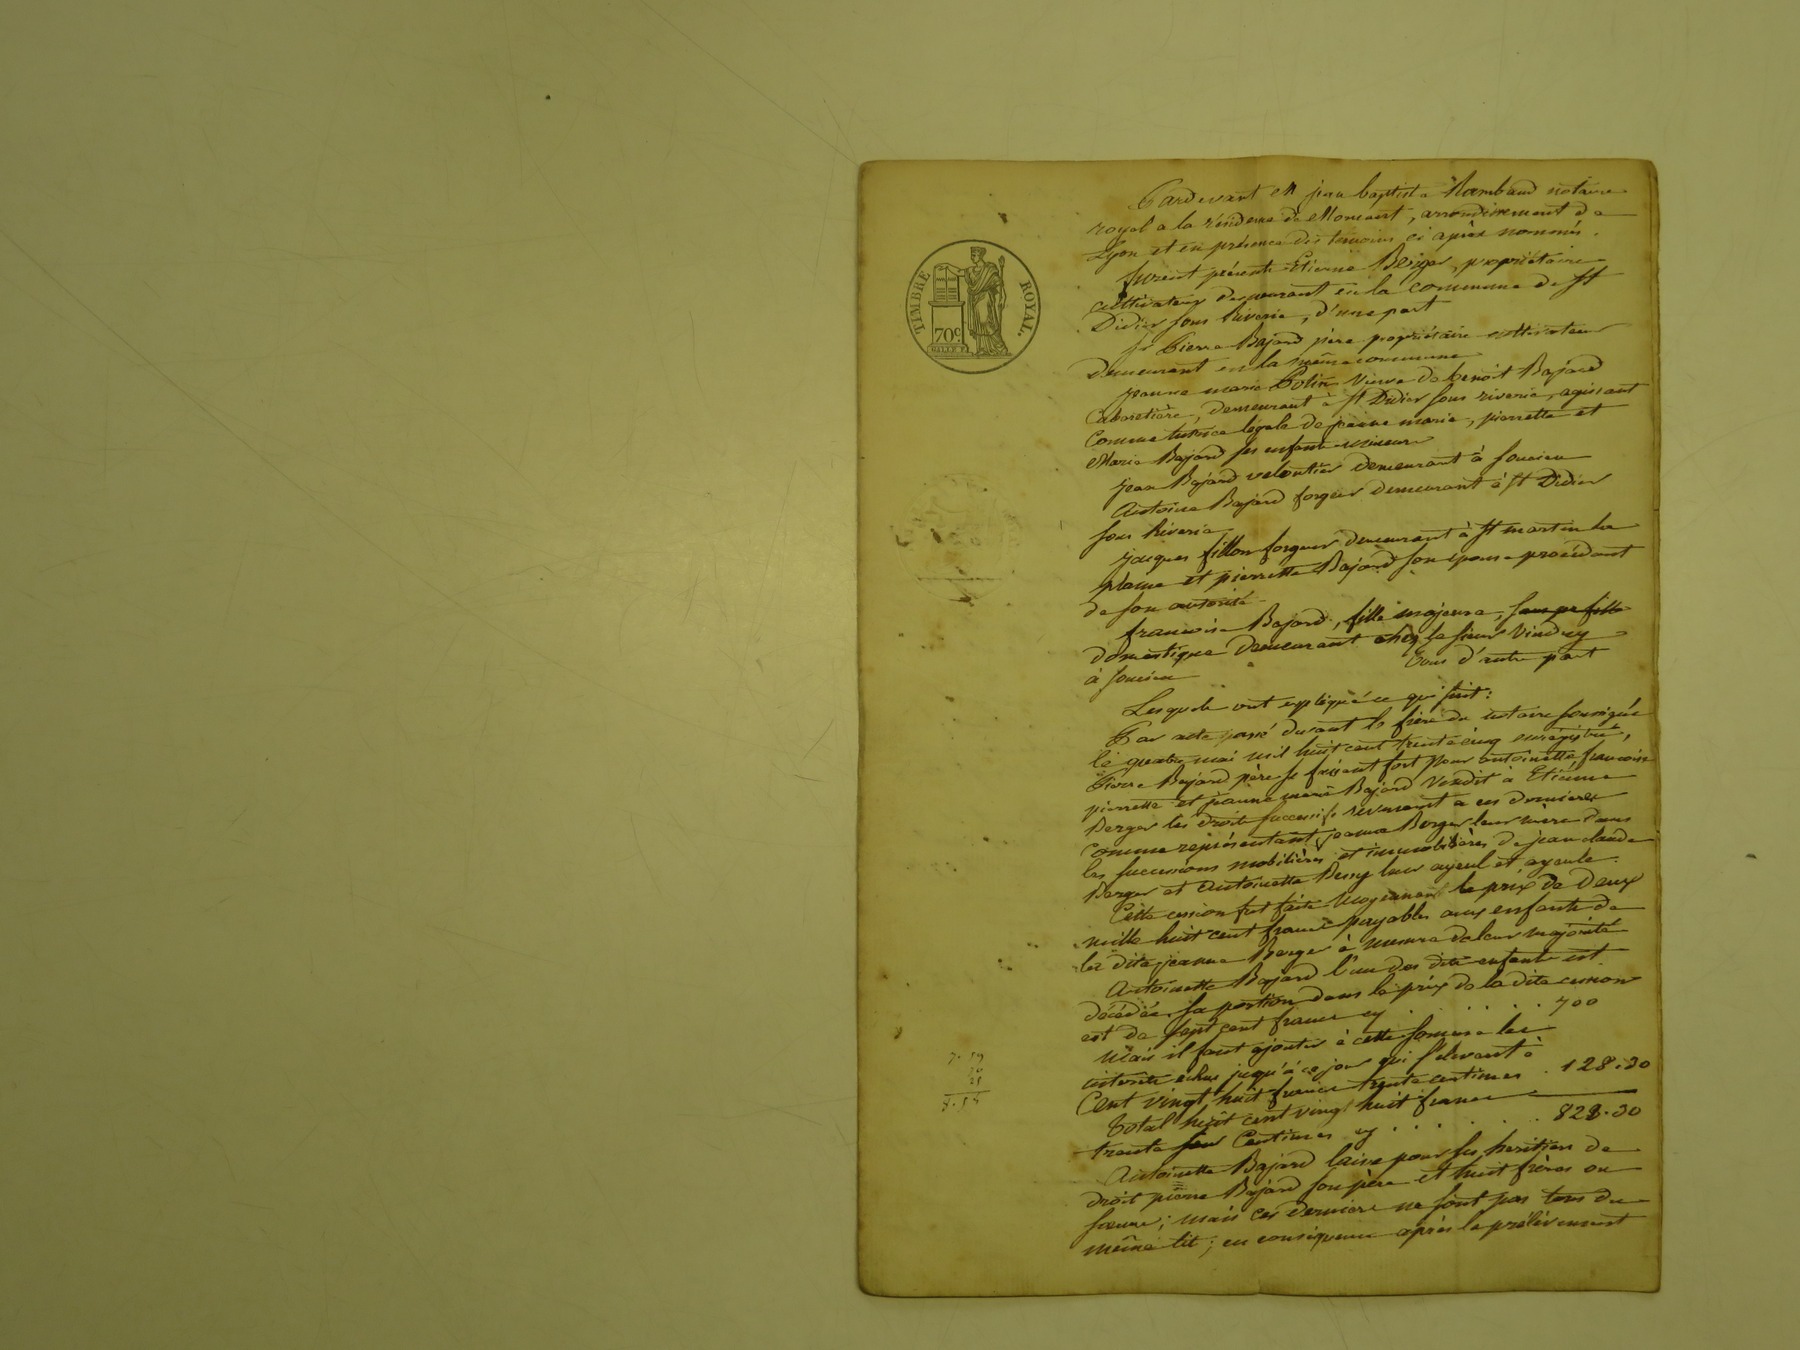 TIMBRE ROYAL.
70c
Pardevant Me jean baptiste Rambaud notaire
royal a la résidence de Mornant, arrondissement de
Lyon et en présence des témoins ci après nommés.
furent présents Etienne Berger, propriétaire
cultivateur demeurant en la commune de St
Didier sous Riverie, d'une part
Pierre Bajard père propriétaire cultivateur
demeurant en la même commune
jeanne marie veuve de benoit Bajard
Cabaretière, demeurant à St Didier sous riverie, agissant
Comme tutrice légale de jeanne marie, pierrette et
Marie Bajard ses enfants mineurs
jean Bajard veloutier demeurant à soucieu
Antoine Bajard forgeur demeurant à St Didier
sous Riverie
jacques fillon forgeur demeurant à St martin la
plaine et pierrette Bajard son épouse procédant
de son autorité
francoise Bajard, fille majeure,
domestique demeurant chez le sieur
à soucieu tous d'autre part
Lesquels ont expliqué ce qui suit:
Par acte passé devant le frère du notaire soussigné
le quatre mai mil huit cent trente cinq enrégistré,
Pierre Bajard père se faisant fort pour antoinette, francoise
pierrette et jeanne marie Bajard vendit a Etienne
Berger les droits successifs revenant a ces dernières
comme représentant jeanne Berger leur mère dans
les successions mobilières et immobilières de jean claude
Berger et Antoinette Bessy leur ayeul et ayeule.
Cette cession fut faite moyennant le prix de Deux
mille huit cent francs payables aux enfants de
la dite jeanne Berger à mesure de leur majorité
Antoinette Bajard l'un des dits enfants est
décédée, sa portion dans le prix de la dite cession
est de sept cent francs cy . . . . . 700
Mais il faut ajouter à cette somme les
intérêts échus jusqu'à ce jour qui s'élevant à
Cent vingt huit francs trente centimes . 128.30
Total huit cent vingt huit francs
trente Centimes cy . . . . . . 828.30
Antoinette Bajard laisse pour ses heritiers de
droit pierre Bajard son père et huit frères ou
soeurs; mais ces derniers ne sont pas tous du
même lit; en conséquence après le prélèvement